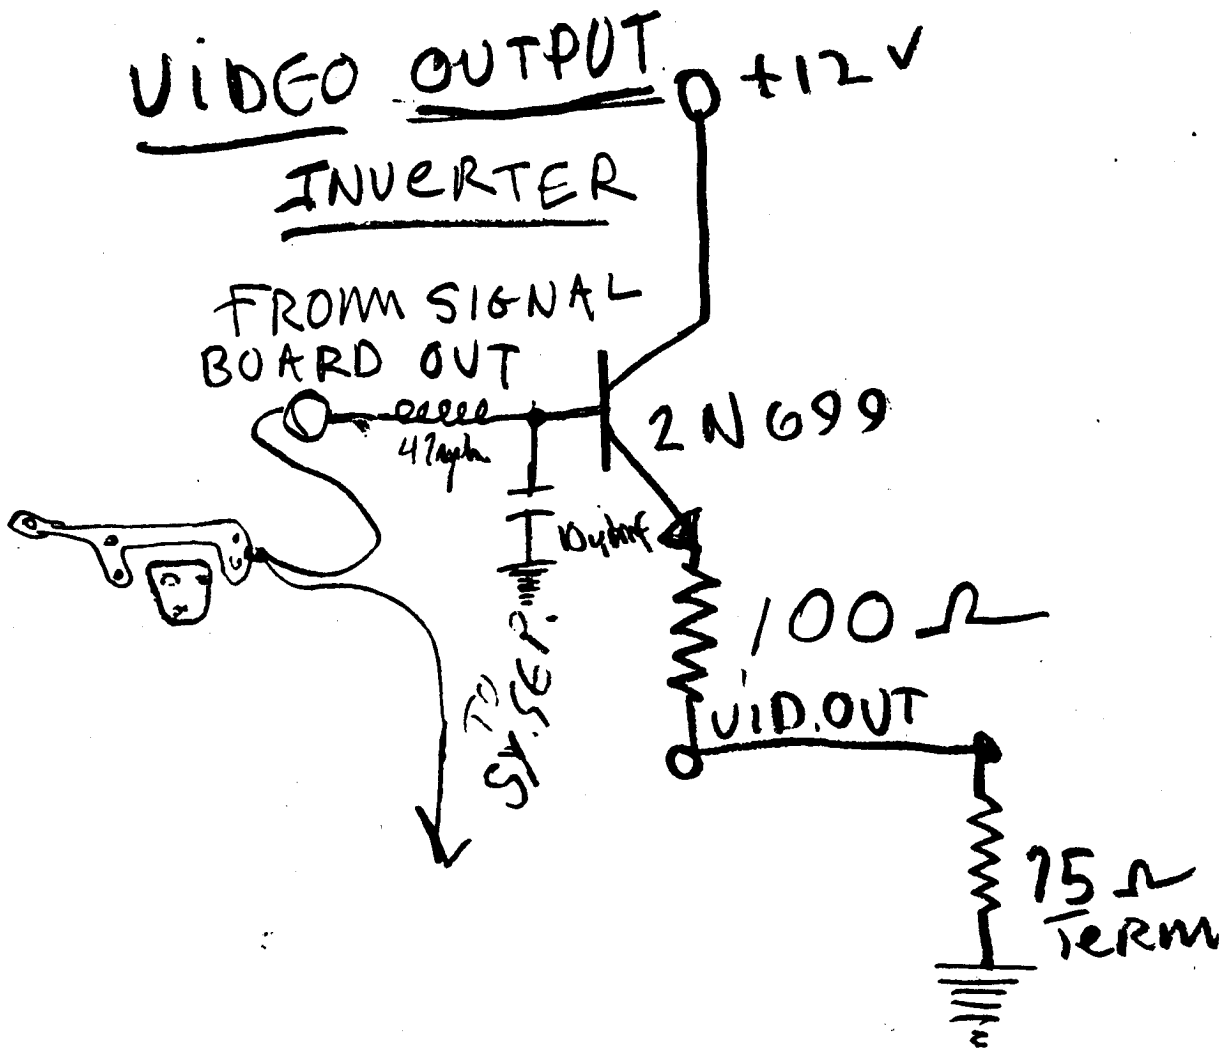 VIDEO OUTPUT
INVERTER
+12V
FROM SIGNAL
BOARD OUT
2N699
100Ω
VID.OUT
TO
SY.SEP.
75Ω
TERM